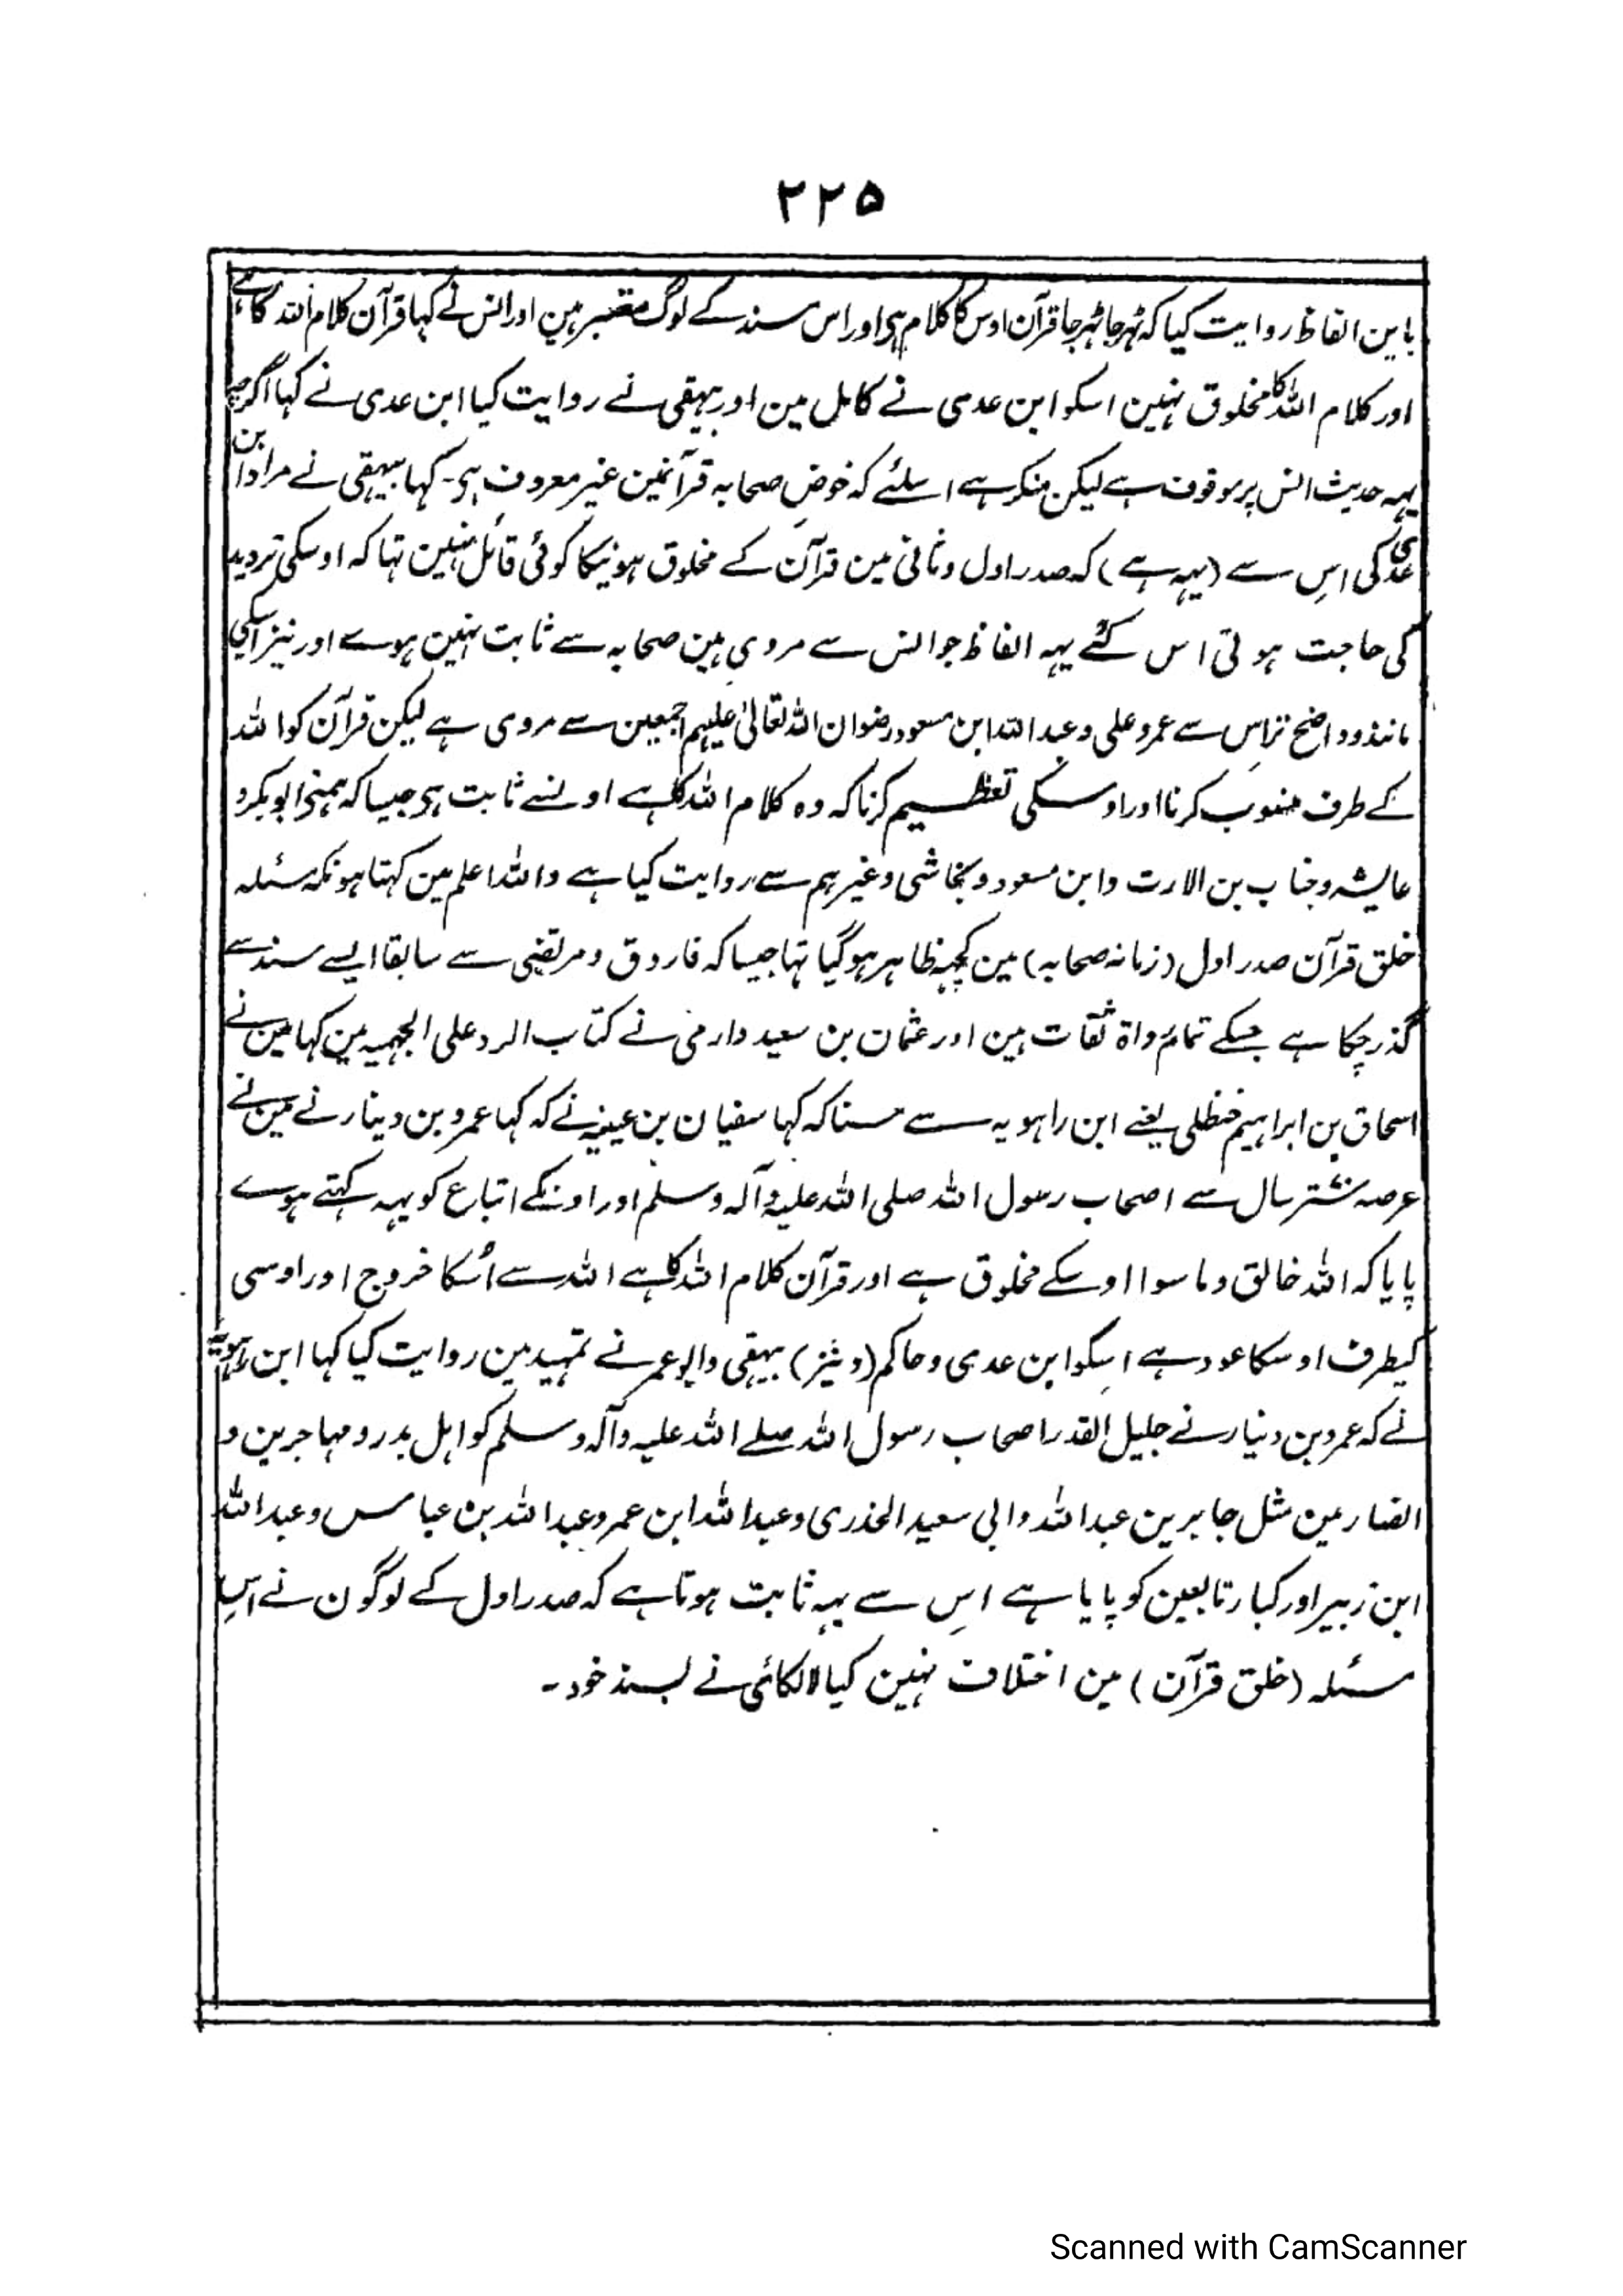 ۲۲۵
باین الفاظ روایت کیا کہ ٹہرجا ٹہرجا قرآن اوس کا کلام ہی اور اس سند کے لوگ معتبر ہین اور انس نے کہا قرآن کلام اللہ کا ہے
اور کلام اللہ کا مخلوق نہین اسکو ابن عدی نے کامل مین اور بیہقی نے روایت کیا ابن عدی نے کہا اگرچہ
یہہ حدیث انس پر موقوف ہے لیکن منکر ہے اسلئے کہ خوض صحابہ قرآنمین غیر معروف ہی۔ کہا بیہقی نے مراد ابن
عدی کی اس سے (یہہ ہے) کہ صدر اول وثانی مین قرآن کے مخلوق ہونیکا کوئی قائل نہین تہا کہ اوسکی تردید
کی حاجت ہوتی اس لئے یہہ الفاظ جو انس سے مروی ہین صحابہ سے ثابت نہین ہوے اور نیز اسکی
مانند و واضح تر اس سے عمر و علی و عبد اللہ ابن مسعود رضوان اللہ تعالیٰ علیہم اجمعین سے مروی ہے لیکن قرآن کو اللہ
کے طرف منسوب کرنا اور اوسکی تعظیم کرنا کہ وہ کلام اللہ کا ہے اونسے ثابت ہی جیسا کہ ہمنے ابو بکر و
عائشہ و خباب بن الارت و ابن مسعود و نجاشی و غیرہم سے روایت کیا ہے واللہ اعلم مین کہتا ہونکہ مسئلہ
خلق قرآن صدر اول (زمانہ صحابہ) مین کچہہ ظاہر ہوگیا تہا جیسا کہ فاروق و مرتضی سے سابقا ایسے سند سے
گذر چکا ہے جسکے تمام رواۃ ثقات ہین اور عثمان بن سعید دارمی نے کتاب الرد علی الجہمیہ مین کہا مین نے
اسحاق بن ابراہیم حنظلی یعنے ابن راہویہ سے سنا کہ کہا سفیان بن عیینہ نے کہ کہا عمرو بن دینار نے مین نے
عرصہ ستر سال سے اصحاب رسول اللہ صلی اللہ علیہ وآلہ وسلم اور اونکے اتباع کو یہہ کہتے ہوے
پایا کہ اللہ خالق و ما سوا اوسکے مخلوق ہے اور قرآن کلام اللہ کا ہے اللہ سے اُسکا خروج اور اوسی
کیطرف اوسکا عود ہے اسکو ابن عدی و حاکم (و نیز) بیہقی و ابو عمر نے تمہید مین روایت کیا کہا ابن راہویہ
نے کہ عمرو بن دینار نے جلیل القدر اصحاب رسول اللہ صلے اللہ علیہ وآلہ وسلم کو اہل بدر و مہاجرین و
انصار مین مثل جابر بن عبد اللہ و ابی سعید الخدری و عبد اللہ ابن عمر و عبد اللہ بن عباس و عبد اللہ
ابن زبیر اور کبار تابعین کو پایا ہے اس سے یہہ ثابت ہوتا ہے کہ صدر اول کے لوگون نے اس
مسئلہ (خلق قرآن) مین اختلاف نہین کیا لالکائی نے بسند خود۔
Scanned with CamScanner